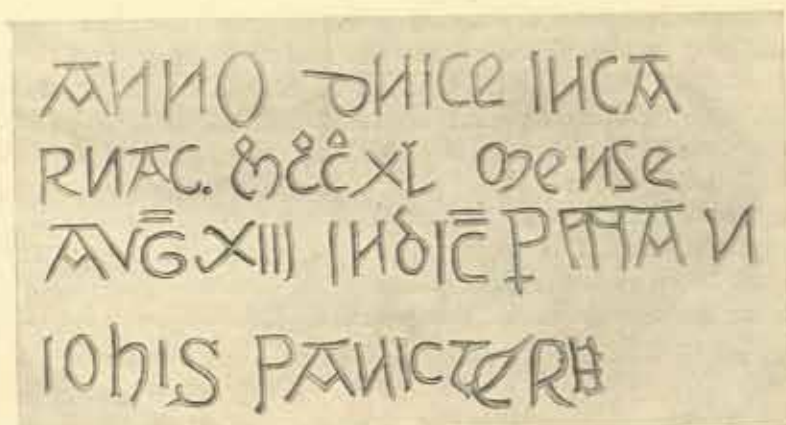 ANNO DNICE INCA
RNAC. MCCXL MENSE
AVḠ XIII INDIC̄ P
IOHIS PANICTER